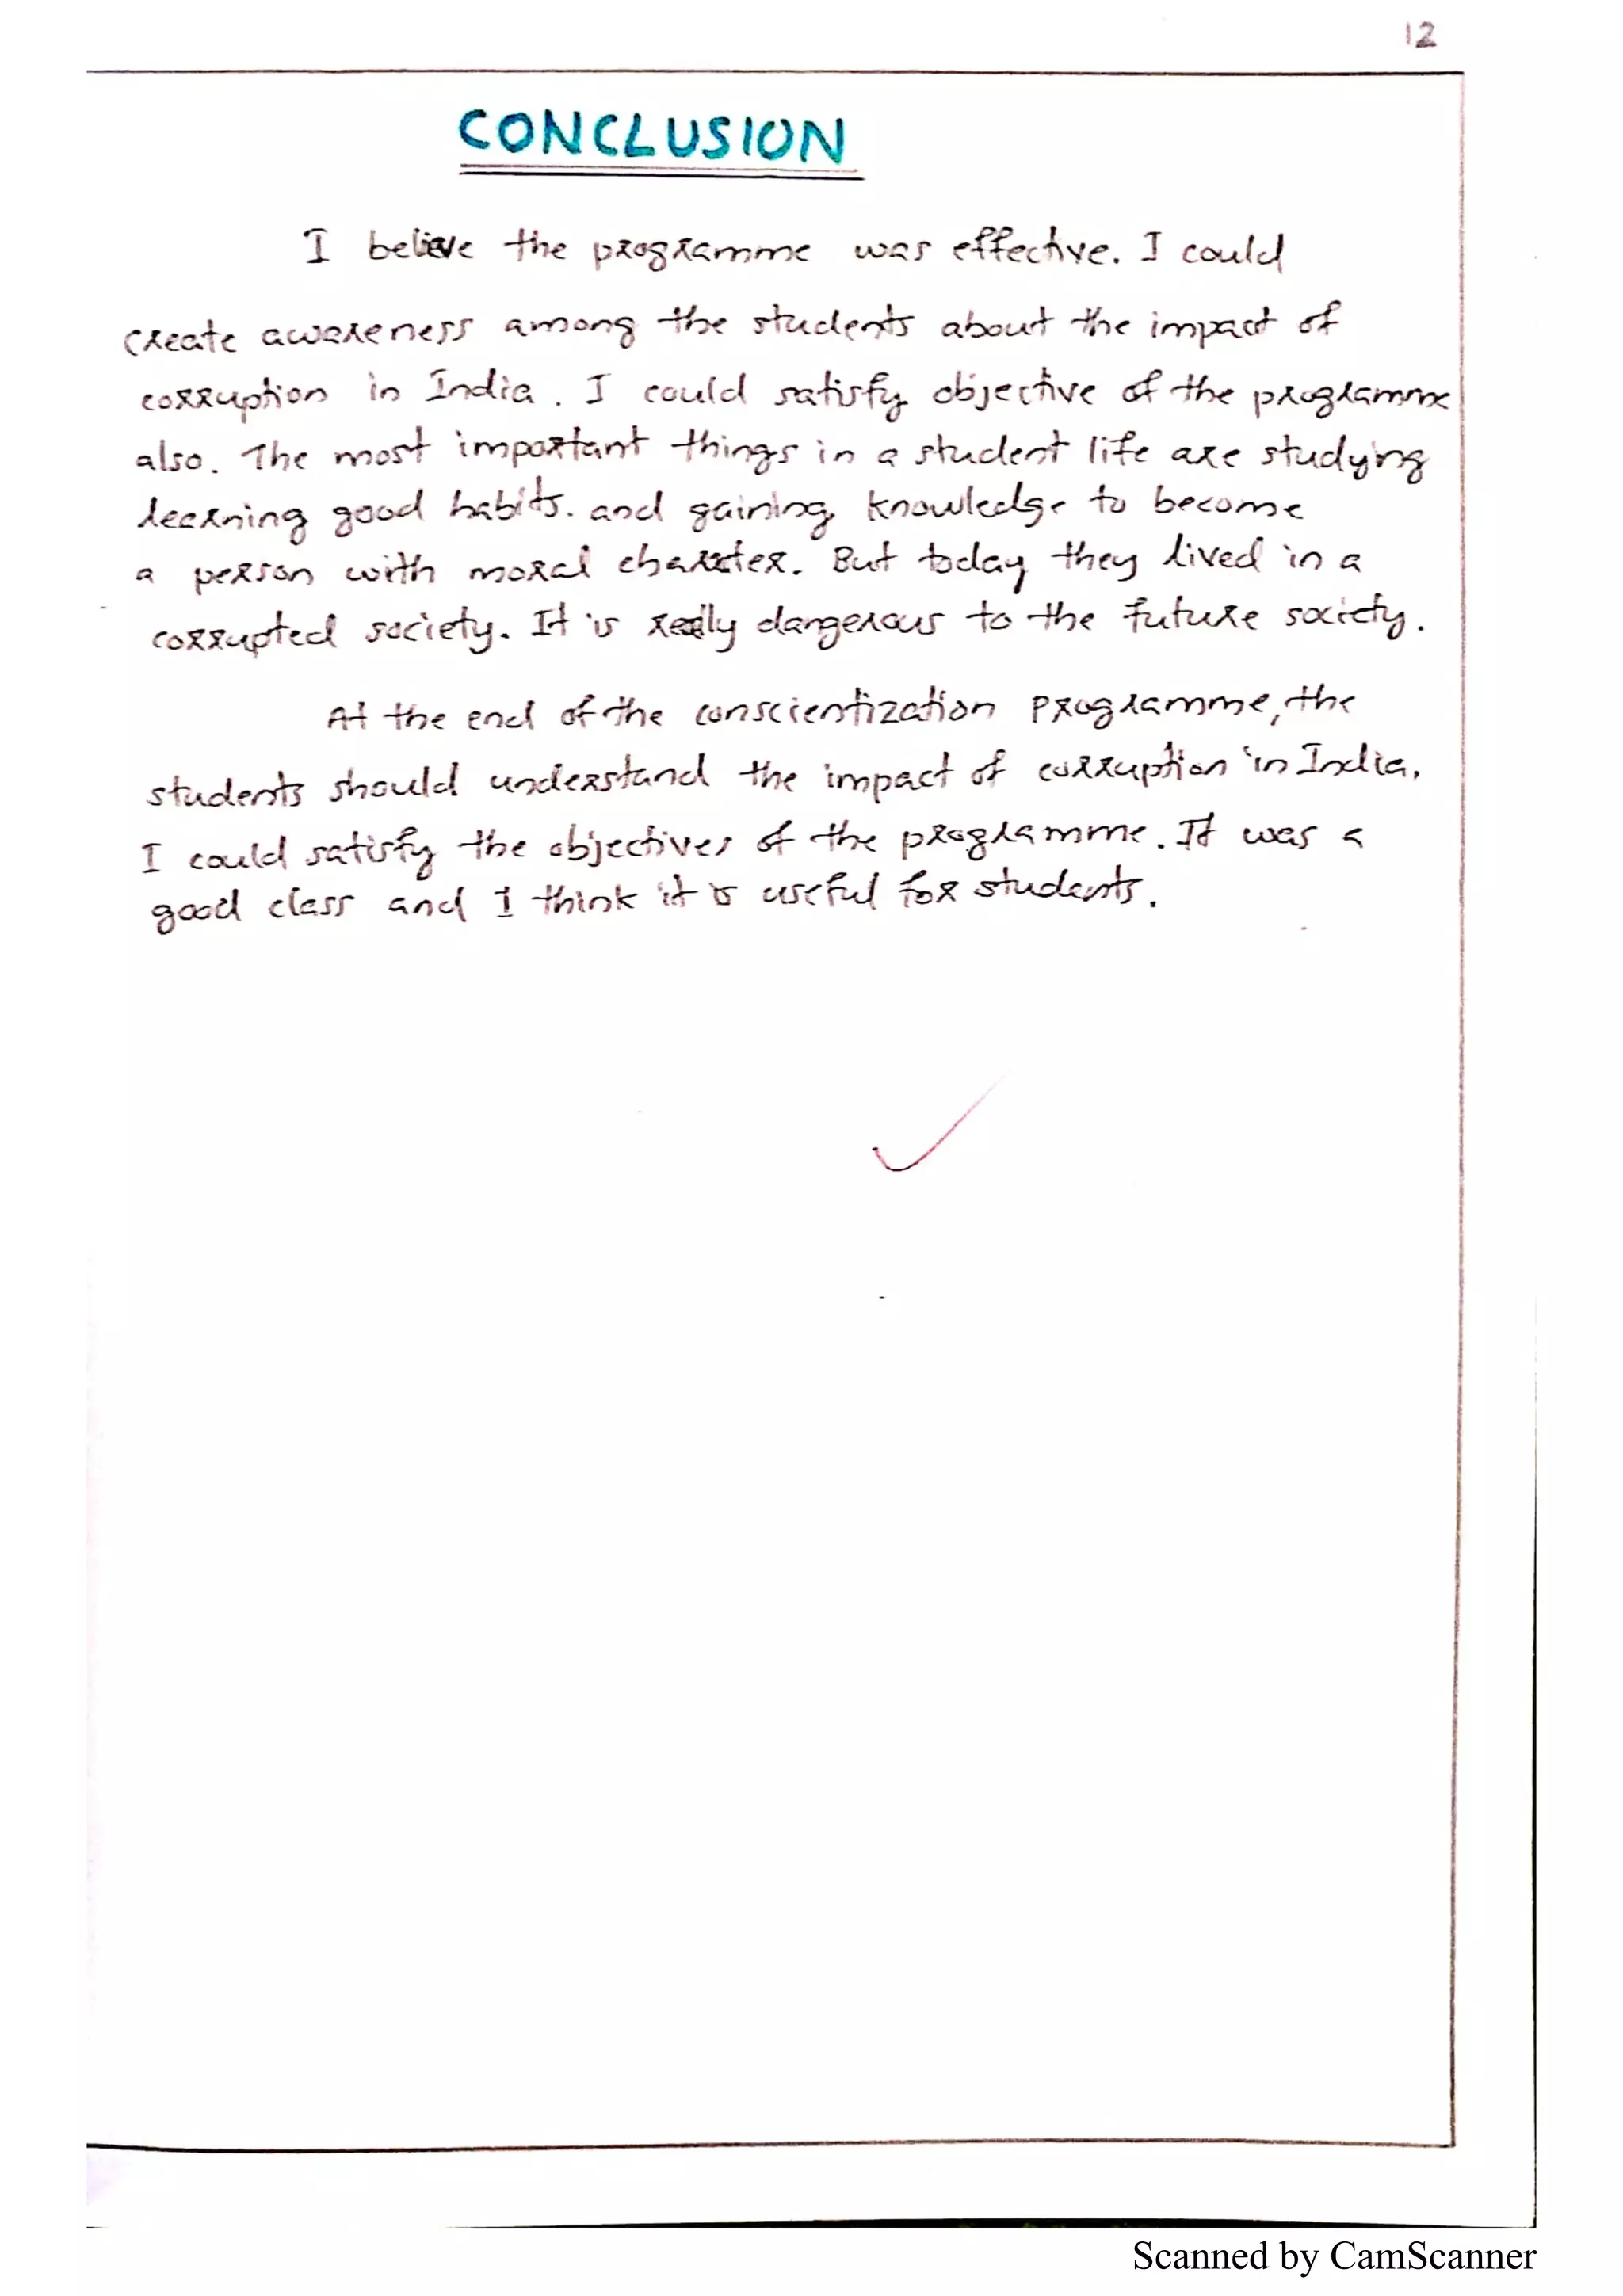 12
CONCLUSION
I believe the programme was effective. I could
create awareness among the students about the impact of
corruption in India. I could satisfy objective of the programme
also. The most important things in a student life are studying
learning good habits. and gaining knowledge to become
a person with moral character. But today they lived in a
corrupted society. It is really dangerous to the future society.
At the end of the conscientization programme, the
students should understand the impact of corruption in India,
I could satisfy the objectives of the programme. It was a
good class and I think it is useful for students.
Scanned by CamScanner